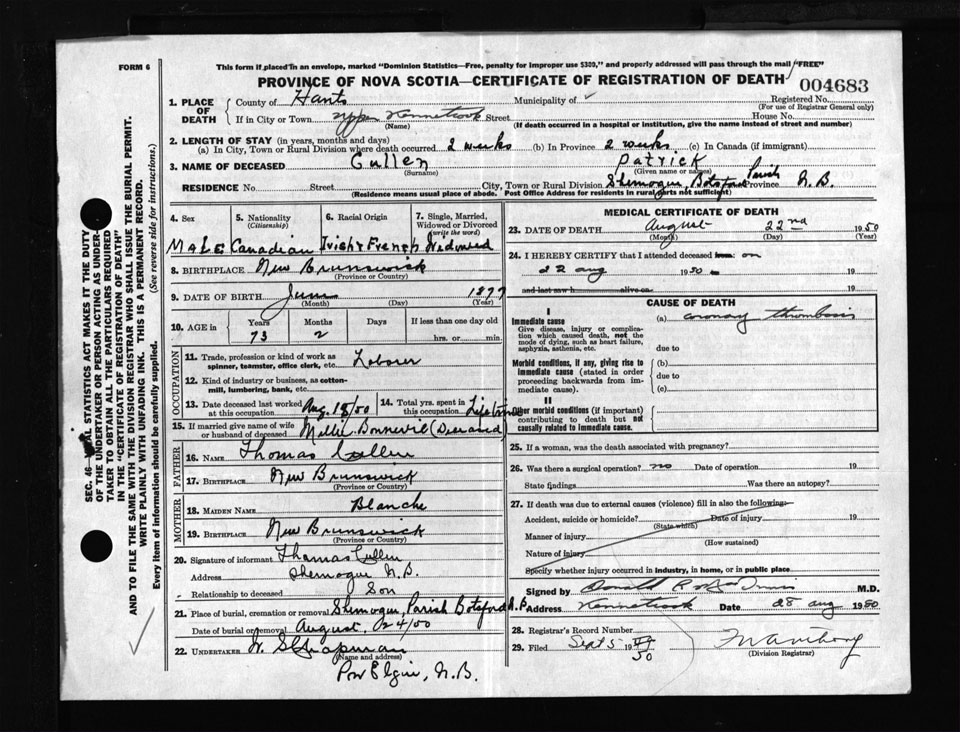 FORM 6
This form if placed in an envelope, marked "Dominion Statistics—Free, penalty for improper use $300," and properly addressed will pass through the mail "FREE"
PROVINCE OF NOVA SCOTIA—CERTIFICATE OF REGISTRATION OF DEATH
004683
1. PLACE OF DEATH County of Hants Municipality of Registered No.
(For use of Registrar General only)
If in City or Town Upper Kennetcook Street House No.
(Name) (If death occurred in a hospital or institution, give the name instead of street and number)
2. LENGTH OF STAY (in years, months and days)
(a) In City, Town or Rural Division where death occurred 2 weeks (b) In Province 2 weeks (c) In Canada (if immigrant)
3. NAME OF DECEASED Cullen Patrick
(Surname) (Given name or names)
RESIDENCE No. Street City, Town or Rural Division Shemogue, Botsford Parish Province N.B.
(Residence means usual place of abode. Post Office Address for residents in rural parts not sufficient)
4. Sex 5. Nationality (Citizenship) 6. Racial Origin 7. Single, Married, Widowed or Divorced (write the word)
MALE Canadian Irish & French Widowed
8. BIRTHPLACE New Brunswick
(Province or Country)
9. DATE OF BIRTH June 1877
(Month) (Day) (Year)
10. AGE in Years Months Days If less than one day old
73 2 hrs. or min.
OCCUPATION
11. Trade, profession or kind of work as spinner, teamster, office clerk, etc. Labour
12. Kind of industry or business, as cotton-mill, lumbering, bank, etc.
13. Date deceased last worked at this occupation Aug. 18/50 14. Total yrs. spent in this occupation Lifetime
15. If married give name of wife or husband of deceased Millie Bonnevil (Deceased)
FATHER
16. NAME Thomas Cullen
17. BIRTHPLACE New Brunswick
(Province or Country)
MOTHER
18. MAIDEN NAME Blanche
19. BIRTHPLACE New Brunswick
(Province or Country)
20. Signature of informant Thomas Cullen
Address Shemogue N.B.
Relationship to deceased Son
21. Place of burial, cremation or removal Shemogue, Parish Botsford N.B
Date of burial or removal August, 24/50
22. UNDERTAKER W. S Chapman
(Name and address)
Port Elgin, N.B.
MEDICAL CERTIFICATE OF DEATH
23. DATE OF DEATH August 22nd 1950
(Month) (Day) (Year)
24. I HEREBY CERTIFY that I attended deceased from on
22 aug 1950 19
and last saw h alive on 19
CAUSE OF DEATH
I
Immediate cause (a) coronary thrombosis
Give disease, injury or complication which caused death, not the mode of dying, such as heart failure, asphyxia, asthenia, etc. due to
Morbid conditions, if any, giving rise to immediate cause (stated in order proceeding backwards from immediate cause). (b)
due to
(c)
II
Other morbid conditions (if important) contributing to death but not causally related to immediate cause.
25. If a woman, was the death associated with pregnancy?
26. Was there a surgical operation? no Date of operation 19
State findings Was there an autopsy?
27. If death was due to external causes (violence) fill in also the following:
Accident, suicide or homicide? Date of injury 19
(State which)
Manner of injury
(How sustained)
Nature of injury
Specify whether injury occurred in industry, in home, or in public place
Signed by M.D.
Address Kennetcook Date 28 aug 1950
28. Registrar's Record Number
29. Filed Sept 5 19 50
(Division Registrar)
SEC. 46—VITAL STATISTICS ACT MAKES IT THE DUTY
OF THE UNDERTAKER OR PERSON ACTING AS UNDERTAKER TO OBTAIN ALL THE PARTICULARS REQUIRED
IN THE "CERTIFICATE OF REGISTRATION OF DEATH"
AND TO FILE THE SAME WITH THE DIVISION REGISTRAR WHO SHALL ISSUE THE BURIAL PERMIT.
WRITE PLAINLY WITH UNFADING INK. THIS IS A PERMANENT RECORD.
Every item of information should be carefully supplied. (See reverse side for instructions.)